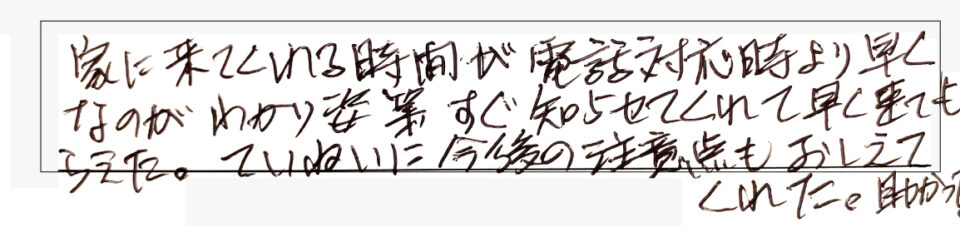 家に来てくれる時間が電話対応時より早く
なのがわかり姿業すぐ知らせてくれて早く来ても
らえた。ていねいに今後の注意点もおしえて
くれた。助かっ